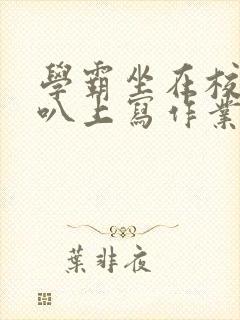 學霸坐在校
叭上寫作業
葉非夜